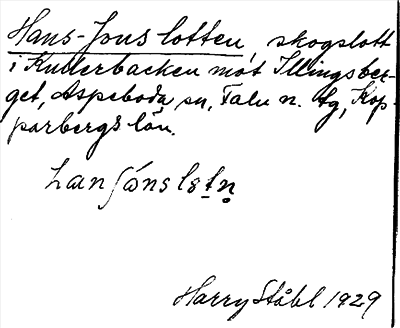 Hans-Jons lotten, skogslott
i Kullerbacken mot Illingsber-
get, Aspeboda sn, Falu n. tg, Kop-
parbergs län.
Harry Ståhl 1929